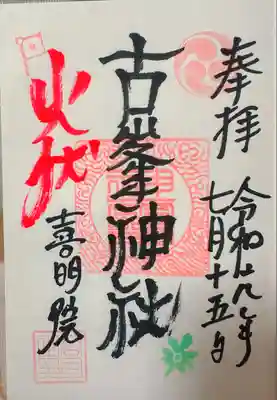 奉拝
令和 年
七月十五日
古峯神社
火伏
喜明院